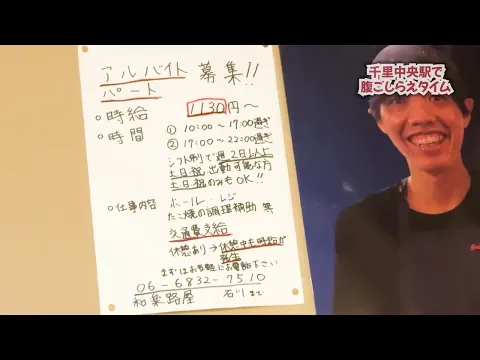 千里中央駅で
腹ごしらえタイム
アルバイト
パート
募集!!
○時給 1130円～
○時間 ① 10:00～17:00過ぎ
② 17:00～22:00過ぎ
シフト制で週2日以上
土日祝 出勤可能な方
土日祝のみもOK!!
○仕事内容 ホール・レジ
たこ焼の調理補助 等
交通費支給
休憩あり→休憩中も時給が
発生
まずはお気軽にお電話下さい
06-6832-7510
和楽路屋 石川まで